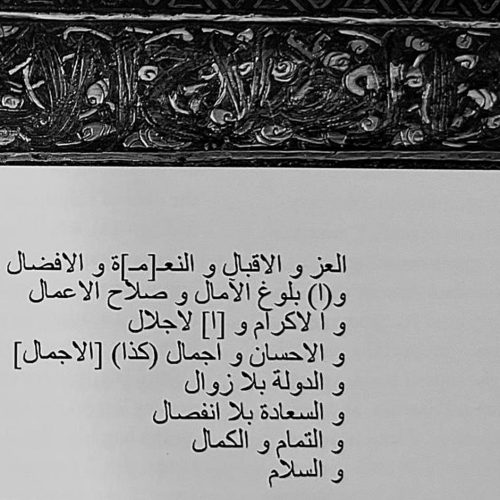 العز و الاقبال و النعـ[مـ]ة و الافضال
و(ا) بلوغ الآمال و صلاح الاعمال
و ا لاكرام و [ا] لاجلال
و الاحسان و اجمال (كذا) [الاجمال]
و الدولة بلا زوال
و السعادة بلا انفصال
و التمام و الكمال
و السلام